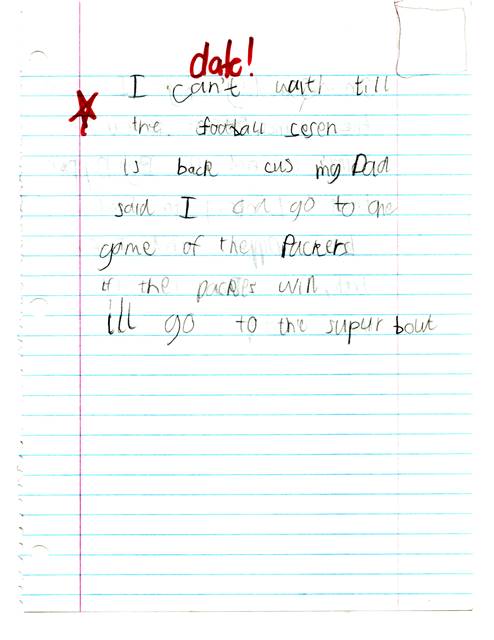 date!
I can't wait till
the football sesen
is back cus my Dad
said I go to one
game of the Packers
if the packers win
ill go to the supur bout